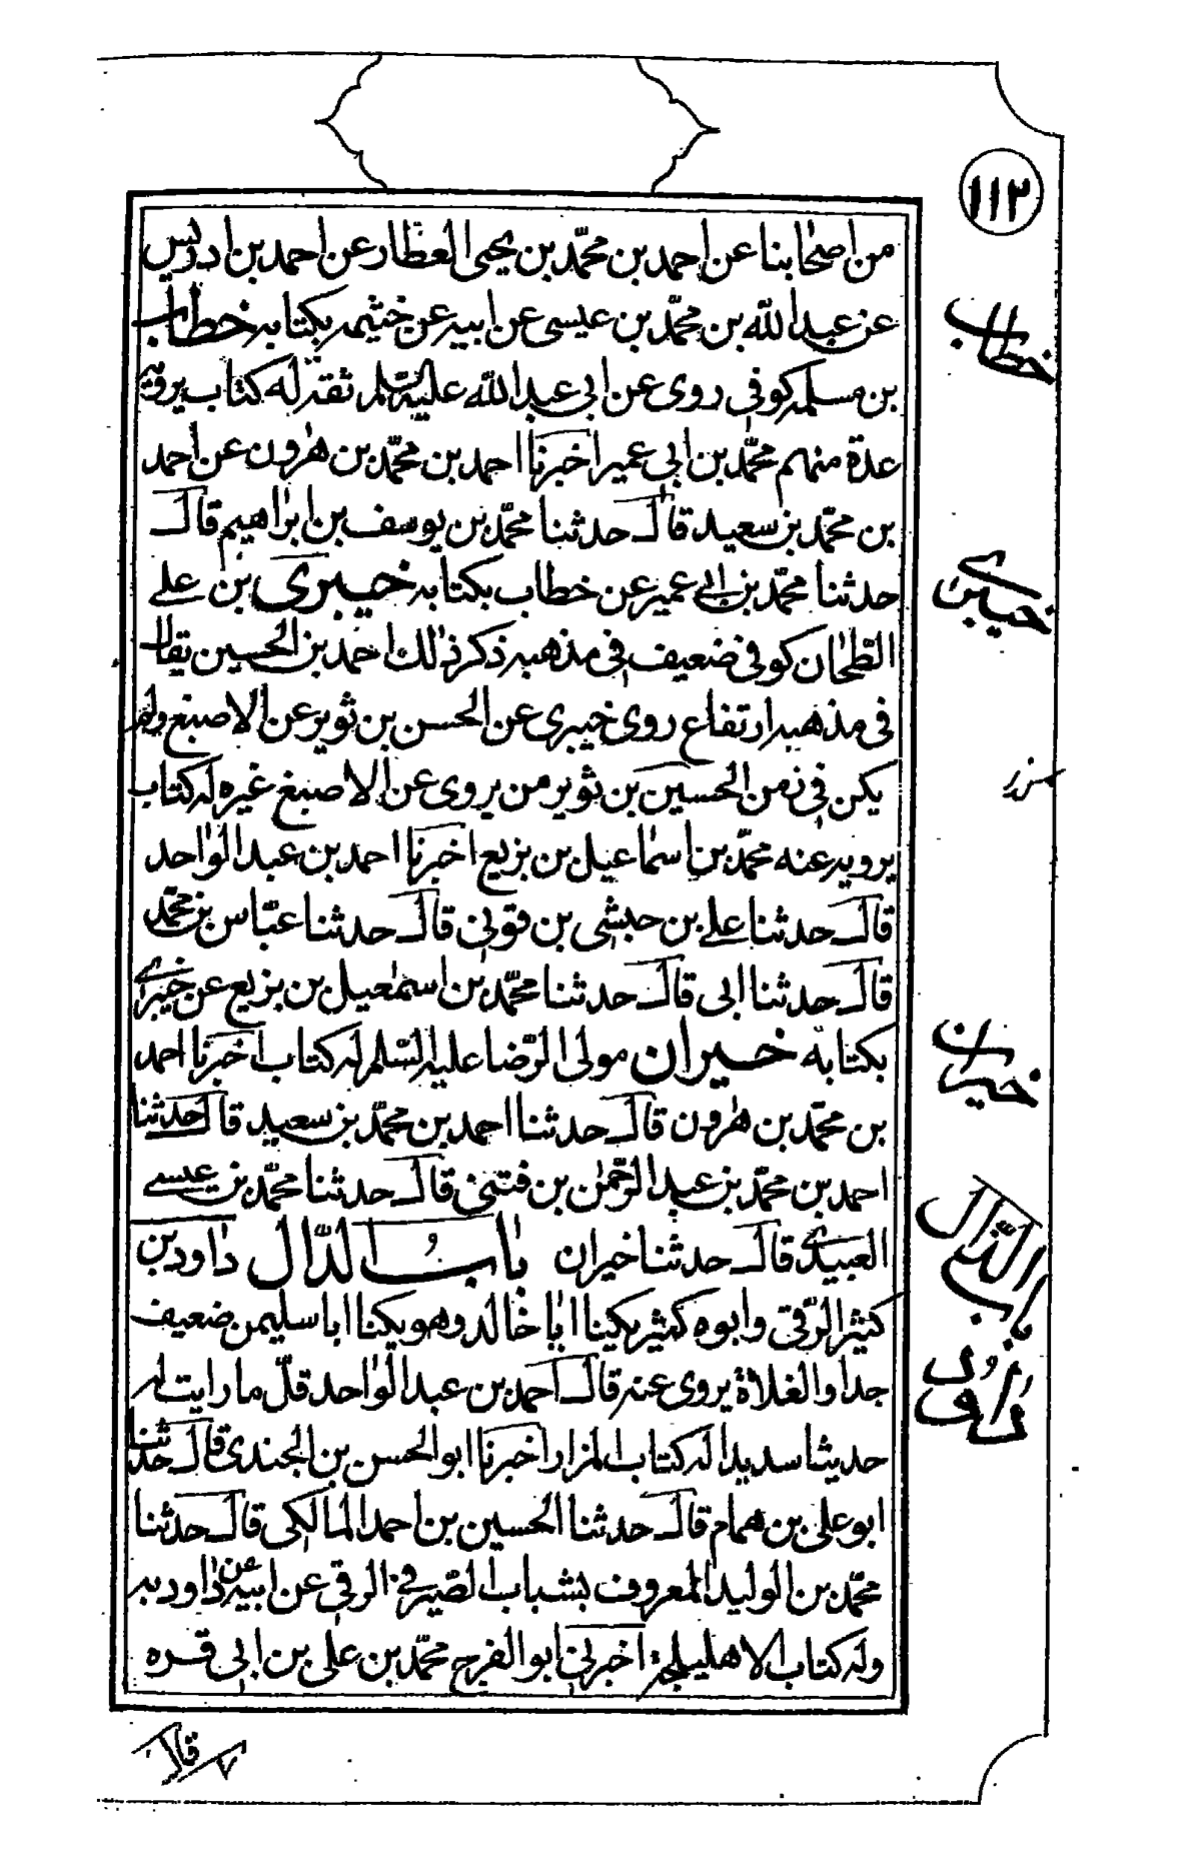 ١١٢
من اصحابنا عن احمد بن محمّد بن يحيى العطار عن احمد بن ادريس
عن عبد الله بن محمّد بن عيسى عن ابيه عن خيثمه بكتابه خطاب
بن مسلمه كوفى روى عن ابى عبد الله عليه السّلم ثقة له كتاب يرويه
عدة منهم محمّد بن ابى عمير اخبرنا احمد بن محمّد بن هٰرون عن احمد
بن محمّد بن سعيد قال حدثنا محمّد بن يوسف بن ابرٰاهيم قال
حدثنا محمّد بن ابى عمير عن خطاب بكتابه خيبرى بن على
الطّحان كوفى ضعيف فى مذهبه ذكر ذٰلك احمد بن الحسين يقال
فى مذهبه ارتفاع روى خيبرى عن الحسن بن ثوير عن الاصبغ ولم
يكن فى زمن الحسين بن ثوير من يروى عن الاصبغ غيره له كتاب
يرويه عنه محمّد بن اسمٰاعيل بن بزيع اخبرنا احمد بن عبد الوٰاحد
قال حدثنا على بن حبشى بن قونى قال حدثنا عبّاس بن محمّد
قال حدثنا ابى قال حدثنا محمّد بن اسمٰعيل بن بزيع عن خيبرى
بكتابه خيران مولى الرّضا عليه السّلم له كتاب اخبرنا احمد
بن محمّد بن هٰرون قال حدثنا احمد بن محمّد بن سعيد قال حدثنا
احمد بن محمّد بن عبد الرّحمٰن بن فتنى قال حدثنا محمّد بن عيسى
العبيدى قال حدثنا خيران بٰابُ الدّال دٰاود بن
كثير الرّقى وابوه كثير يكينا ابٰا خالد وهو يكنا ابا سليمن ضعيف
جدا والغلاة يروى عنه قال احمد بن عبد الوٰاحد قلّ ما رايت له
حديثا سديدا له كتاب المزار اخبرنا ابو الحسن بن الجندى قال حدثنا
ابو على بن همام قال حدثنا الحسين بن احمد المالكى قال حدثنا
محمّد بن الوليد المعروف بشباب الصّيرفى الرقى عن ابيه عن دٰاود به
وله كتاب الاهليلجه اخبرنى ابو الفرج محمّد بن على بن ابى قره
خطاب
خيبرى
خيران
باب الدّال
دٰاود
قال